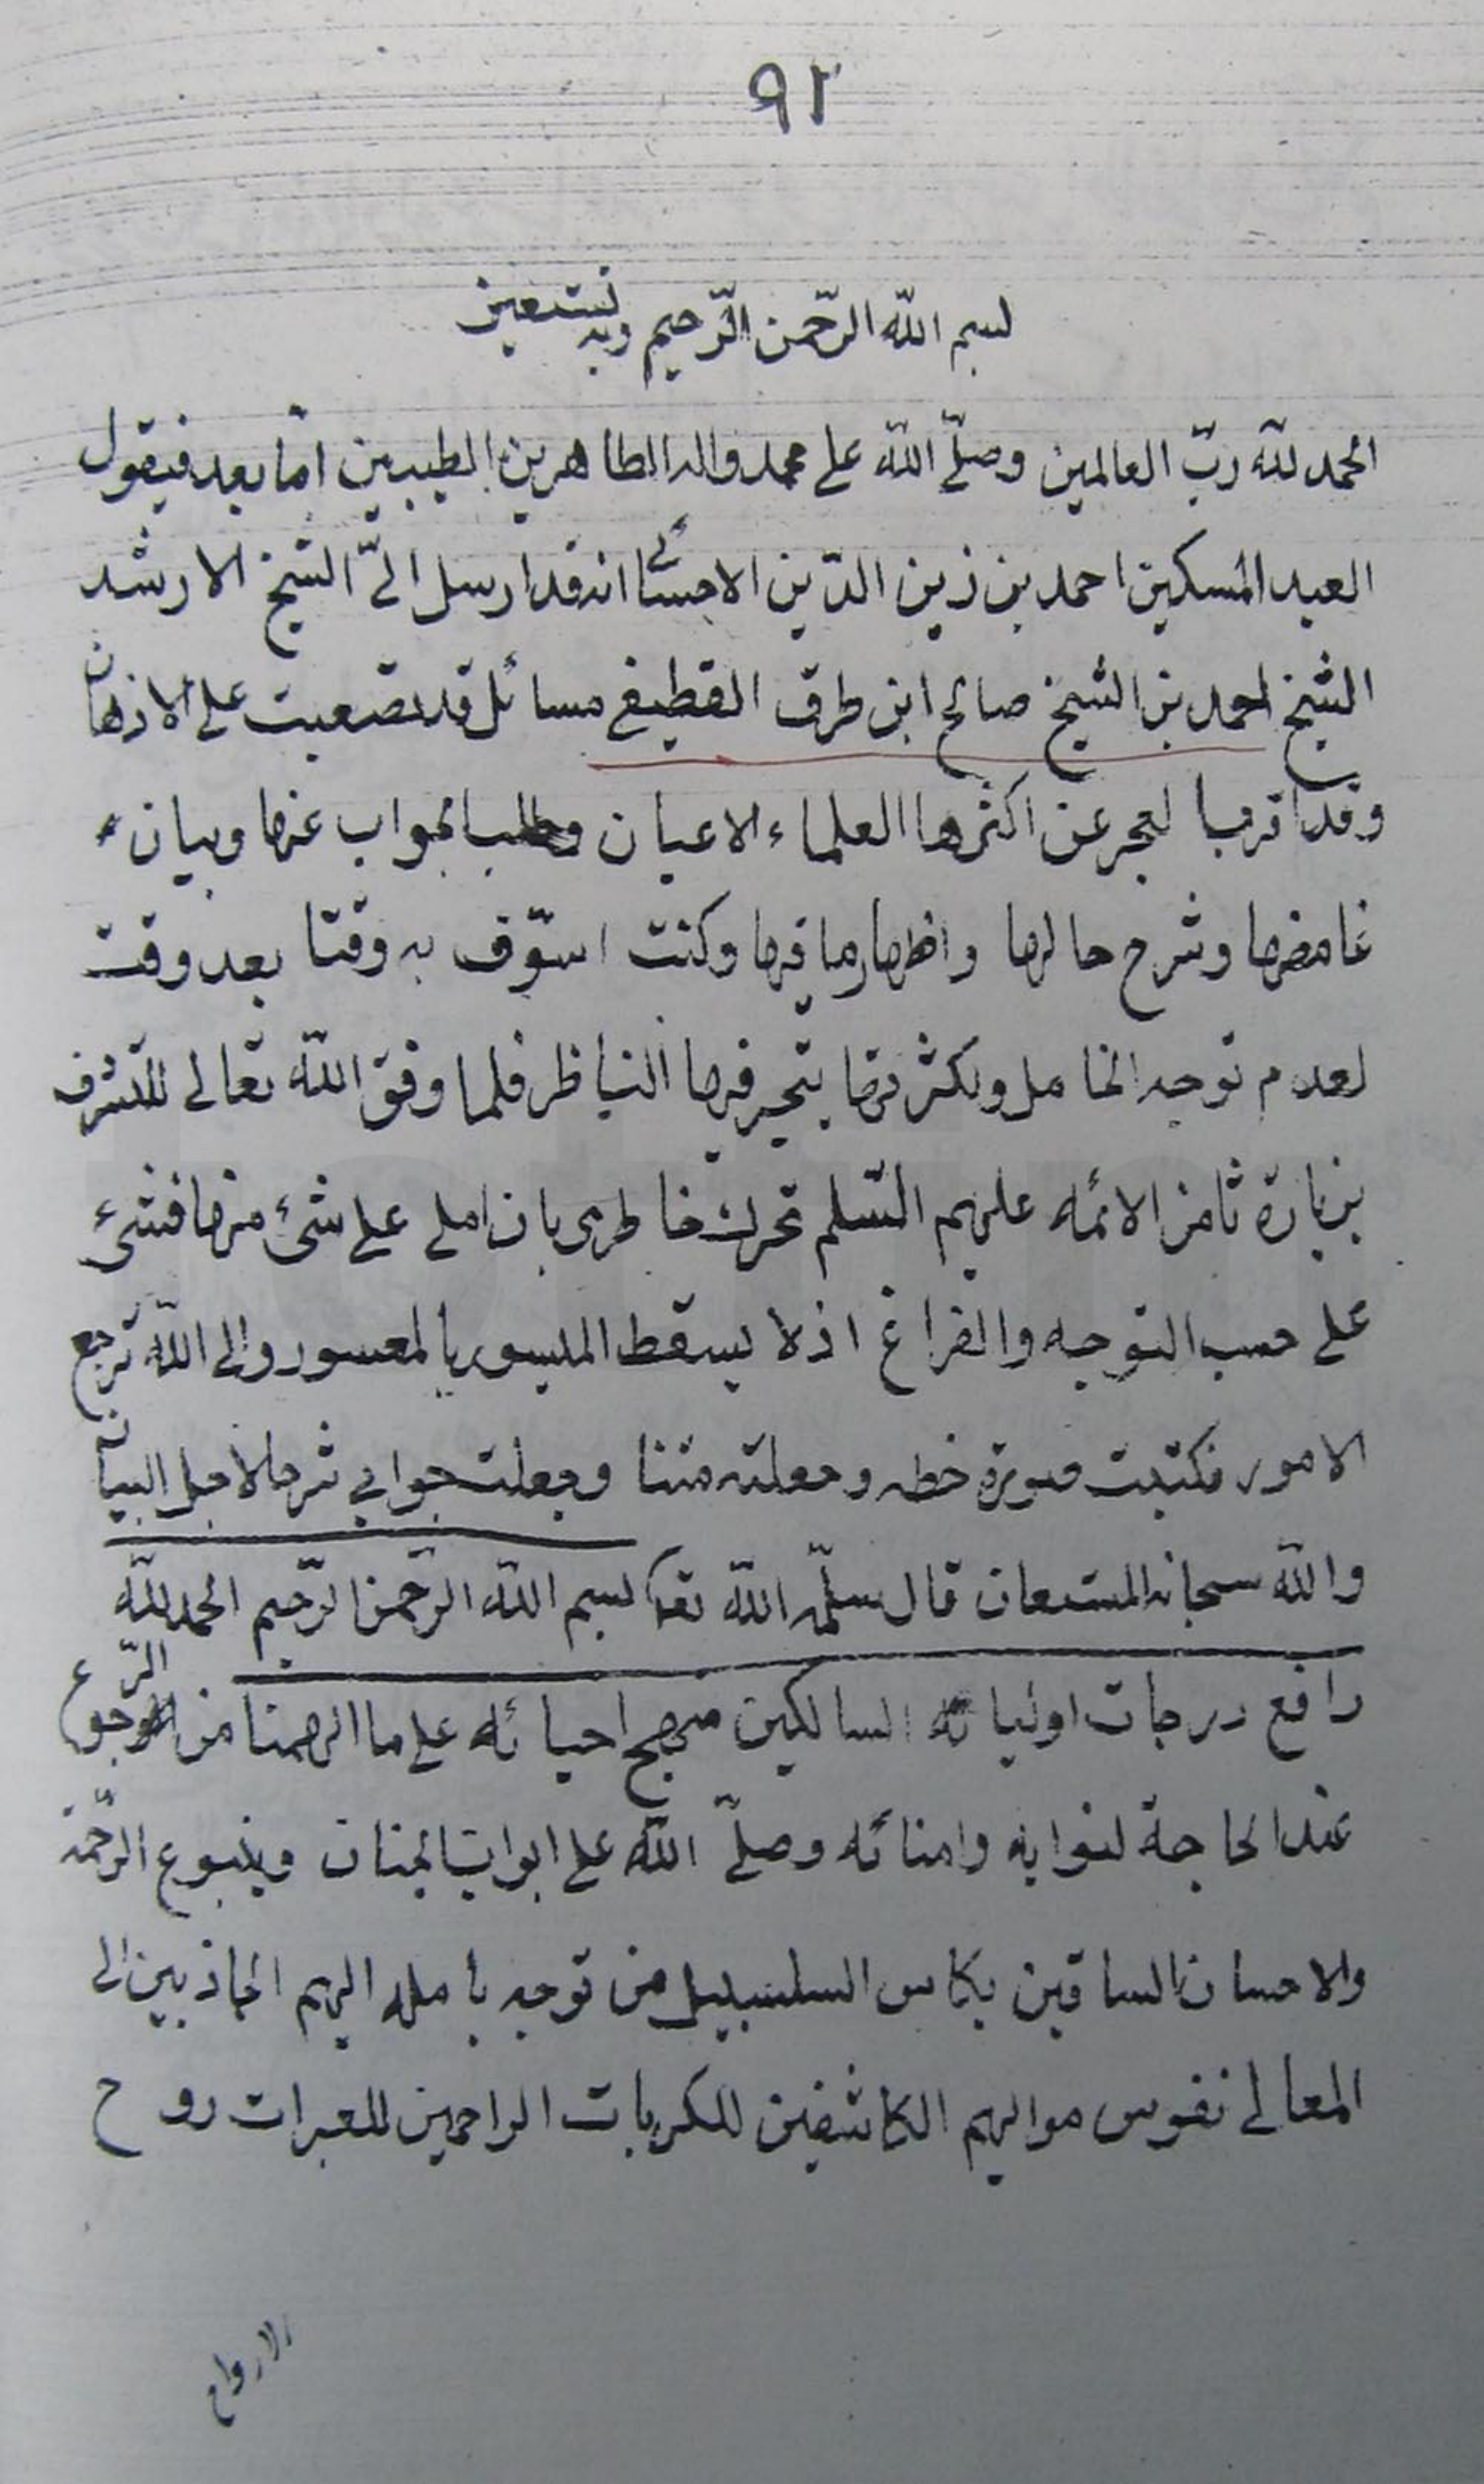 ٩٢
بسم الله الرّحمن الرّحيم وبه نستعين
الحمد لله ربّ العالمين وصلّى اللّه على محمد واله الطاهرين الطيبين امّا بعد فيقول
العبد المسكين احمد بن زين الدّين الاحسائى انه قد ارسل الىّ الشيخ الارشد
الشيخ احمد بن الشيخ صالح ابن طوق القطيفى مسائل قد تصعبت على الاذهان
وقد اقر بها لعجز عن اكثرها العلماء الاعيان وطلب الجواب عنها وبيان
غامضها وشرح حالها واظهار ما فيها وكنت اسوّف به وقتا بعد وقت
لعدم توجه الخاطر ولكثرتها يتحير فيها الناظر فلما وفق اللّه تعالى للتشرف
بزيارة ثامن الائمه عليهم السّلم تحرك خاطرى بان املى على شئ منها فشئ
على حسب التوجه والفراغ اذ لا يسقط الميسور بالمعسور والى اللّه ترجع
الامور فكتبت صورة خطه وجعلته متنا وجعلت جوابي شرحا لاجل البيان
واللّه سبحانه المستعان قال سلّمه اللّه تعالى بسم اللّه الرّحمن الرّحيم الحمد للّه
رافع درجات اوليائه السالكين منهج احبائه على ما الهمنا من الرّجوع
عند الحاجة لنوابه وامنائه وصلّى اللّه على ابواب الجنان وينبوع الرّحمة
والاحسان الساقين بكاس السلسبيل من توجه بأمله اليهم الجاذبين الى
المعالى نفوس مواليهم الكاشفين للكربات الراحمين للعبرات روح
الارواح